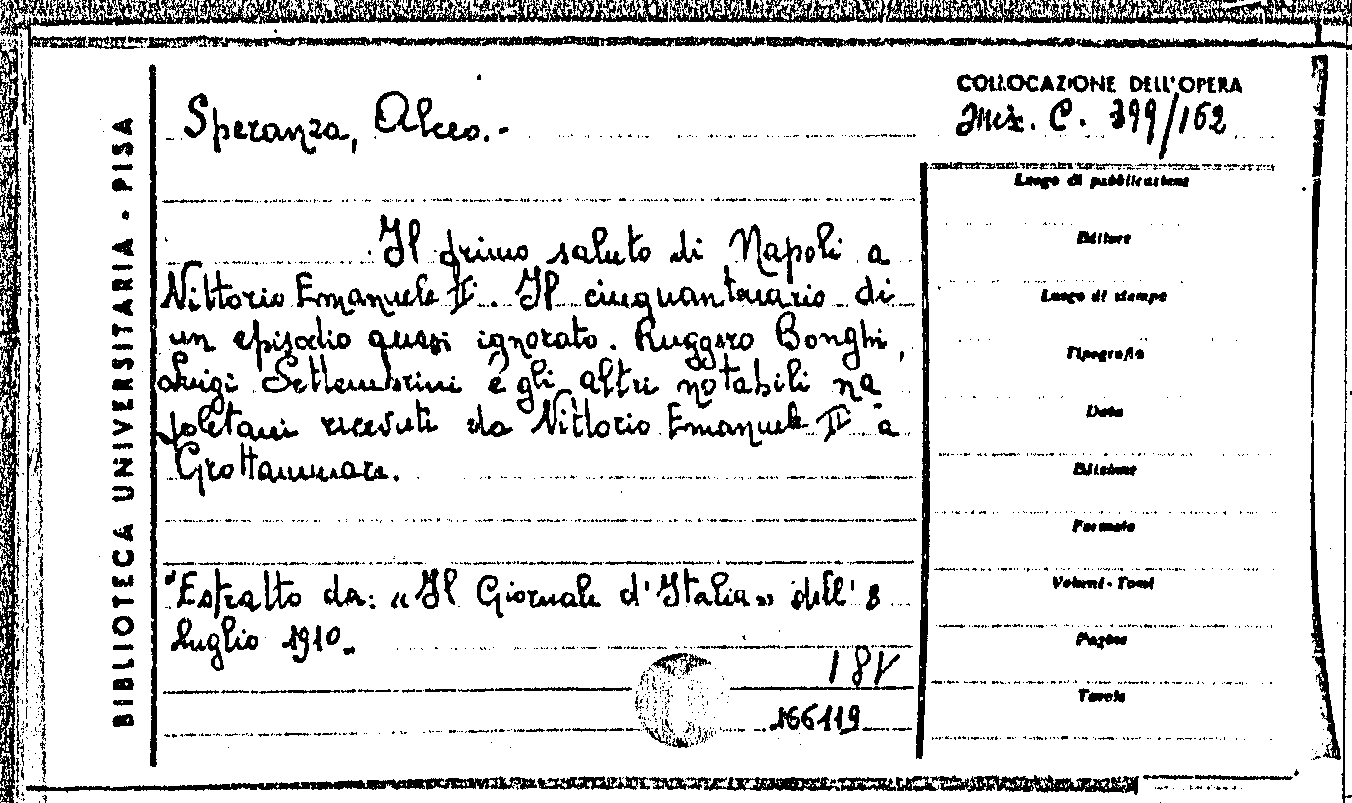 BIBLIOTECA UNIVERSITARIA - PISA
Speranza, Alceo.-
COLLOCAZIONE DELL'OPERA
Mis. C. 399/162
Il primo saluto di Napoli a
Vittorio Emanuele II. Il cinquantenario di
un episodio quasi ignorato. Ruggero Bonghi,
Luigi Settembrini e gli altri notabili na
poletani ricevuti da Vittorio Emanuele II a
Grottammare.
Estratto da: «Il Giornale d'Italia» dell' 8
luglio 1910.
18V
166119
Luogo di pubblicazione
Editore
Luogo di stampa
Tipografia
Data
Edizione
Formato
Volumi - Tomi
Pagine
Tavole